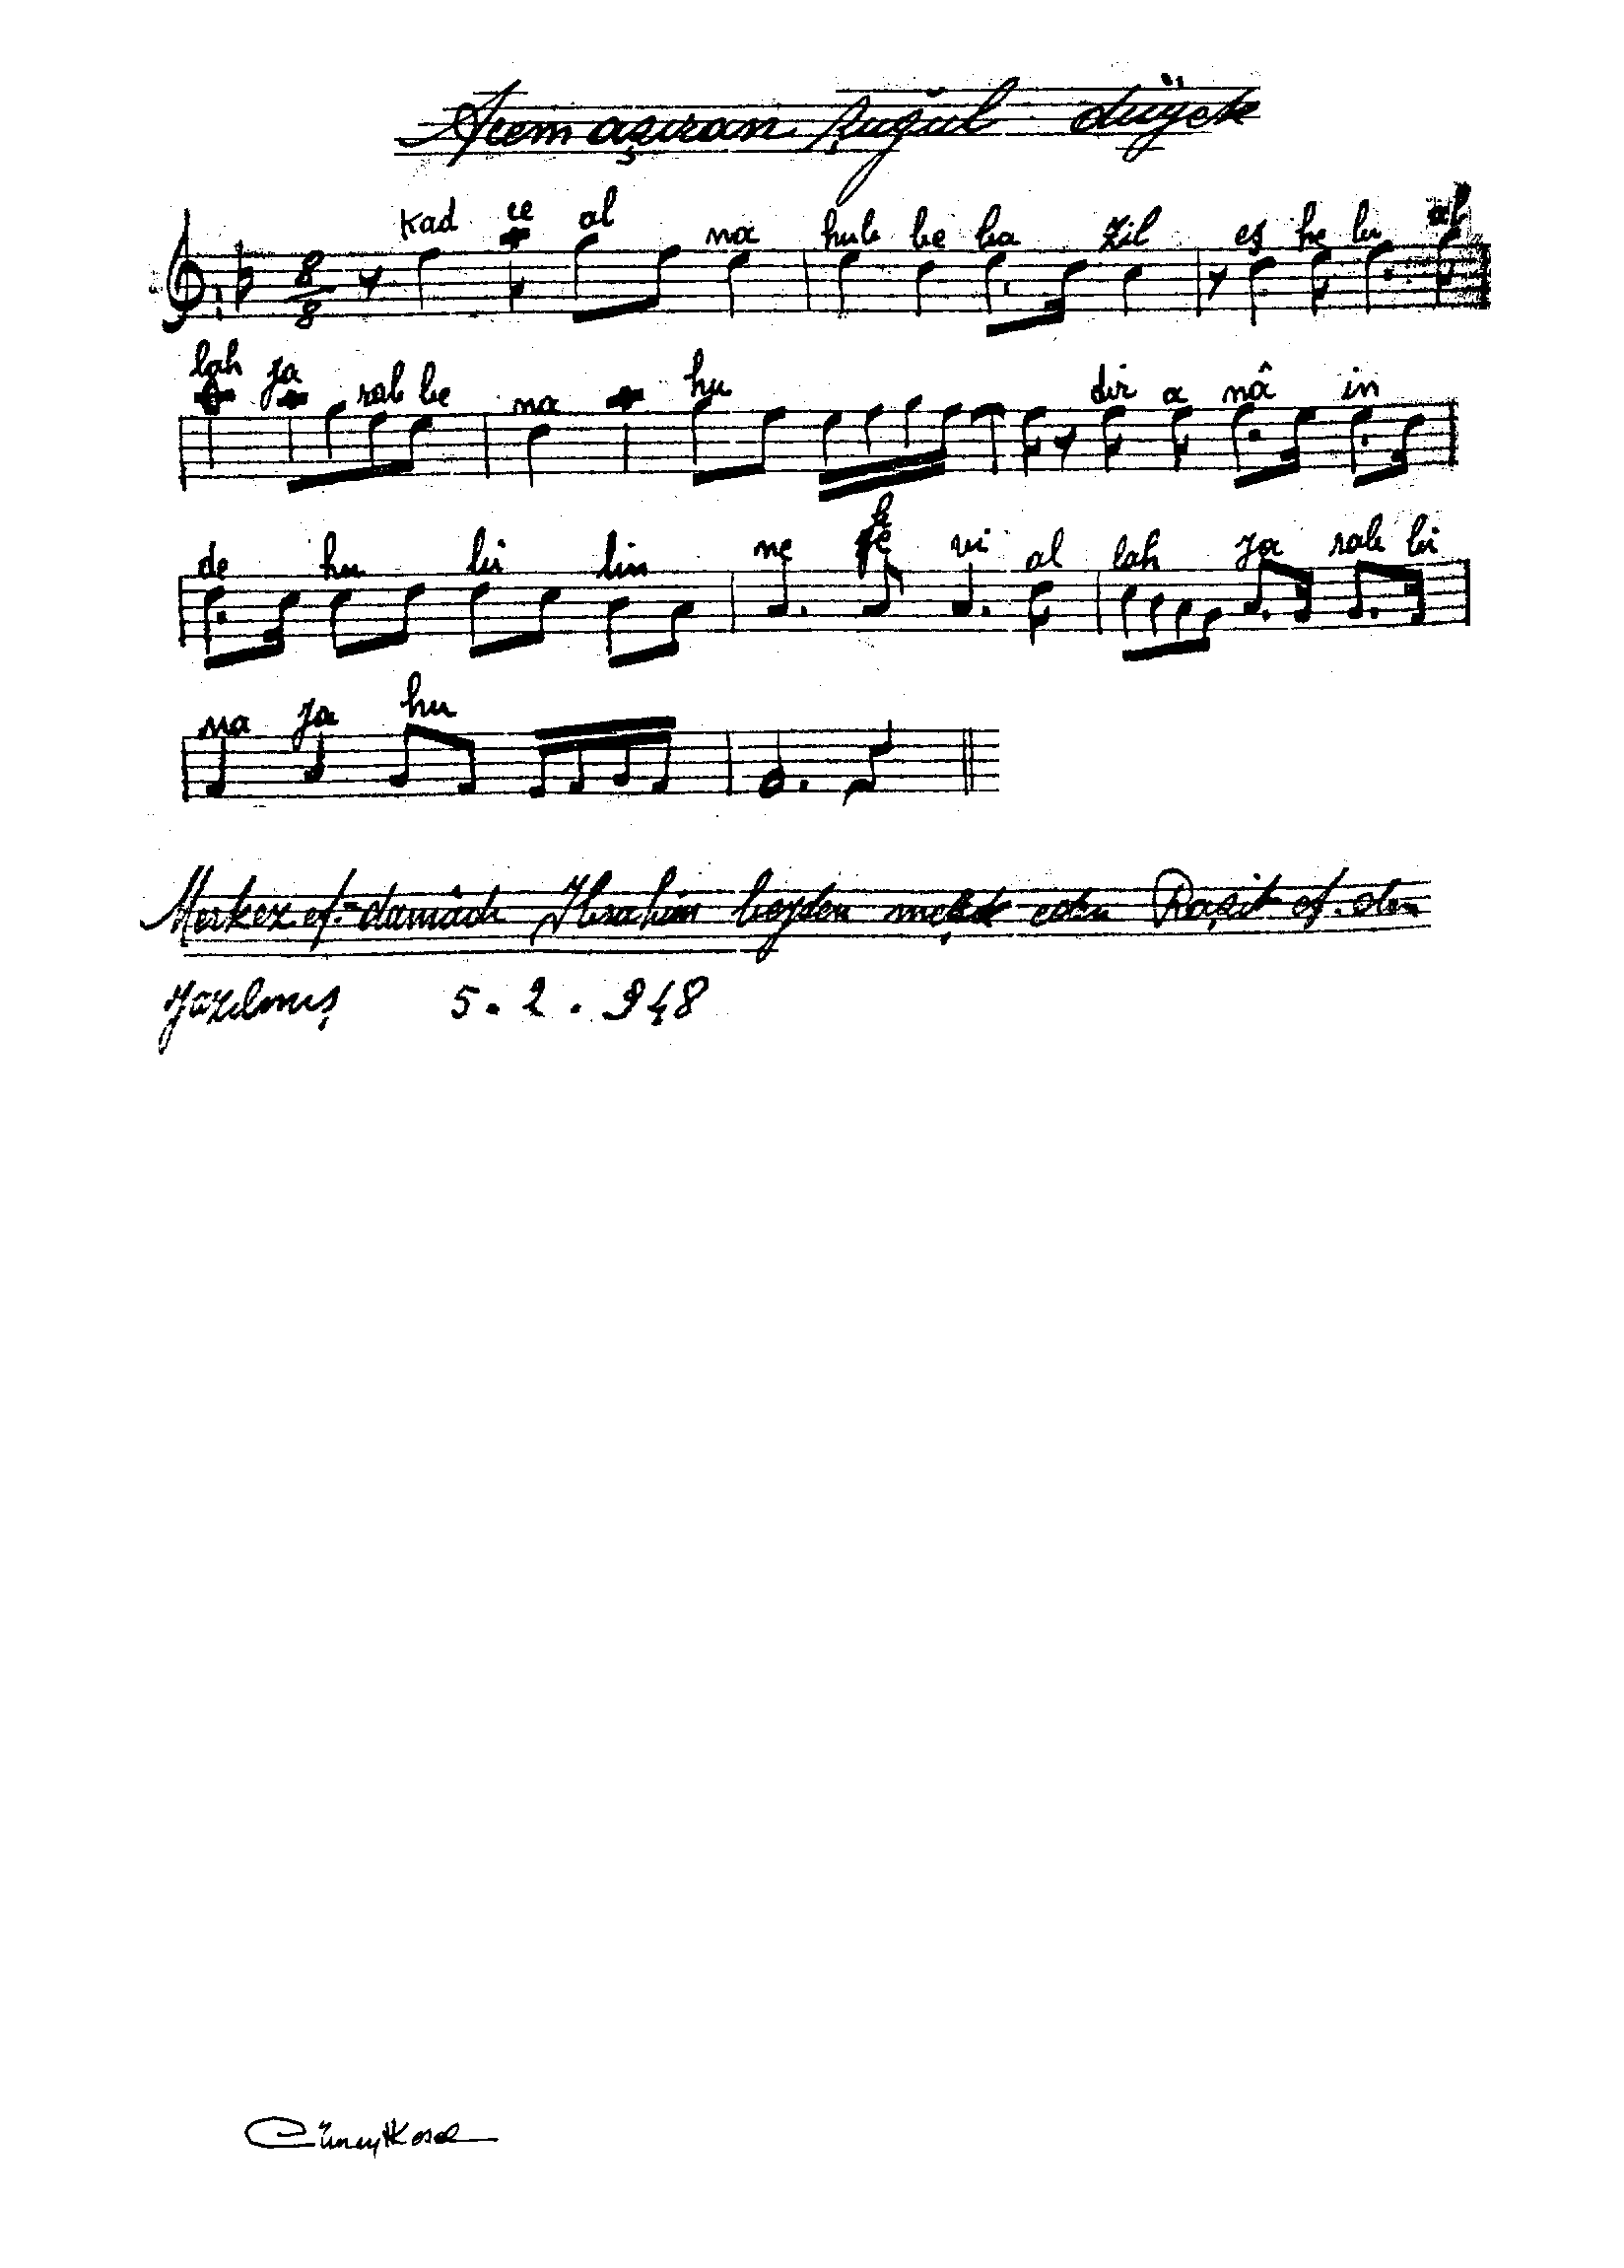 Acemaşıran şuğul düyek
8/8 kad ce al na hub be ba zil eş he bu al
lah ya rab be na hu dir a nâ in
de hu bi bin ne fe vi al lah ya rab bi
na ya hu
Merkez ef. damâdı İbrahim beyden meşk eden Raşit ef. den
yazılmış 5.2.948
Cüneyt Kosal